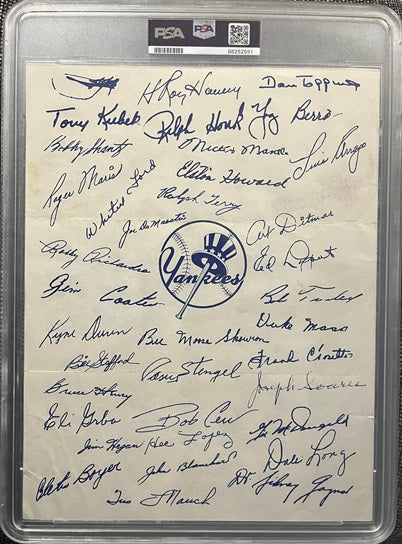 PSA PSA 88252591
H Roy Hamey Dan Topping
Tony Kubek Ralph Houk Yogi Berra
Bobby Shantz Mickey Mantle Luis Arroyo
Roger Maris Whitey Ford Elston Howard
Ralph Terry
Joe DeMaestri Art Ditmar
Bobby Richardson Yankees Ed Lopat
Jim Coates Bob Turley
Ryne Duren Bill Moose Skowron Duke Maas
Bill Stafford Casey Stengel Frank Crosetti
Bruce Henry Joseph Soares
Eli Grba Bob Cerv Gil McDougald
Jim Hegan Hec Lopez Dale Long
Clete Boyer John Blanchard Dr. Sidney Gaynor
Gus Mauch